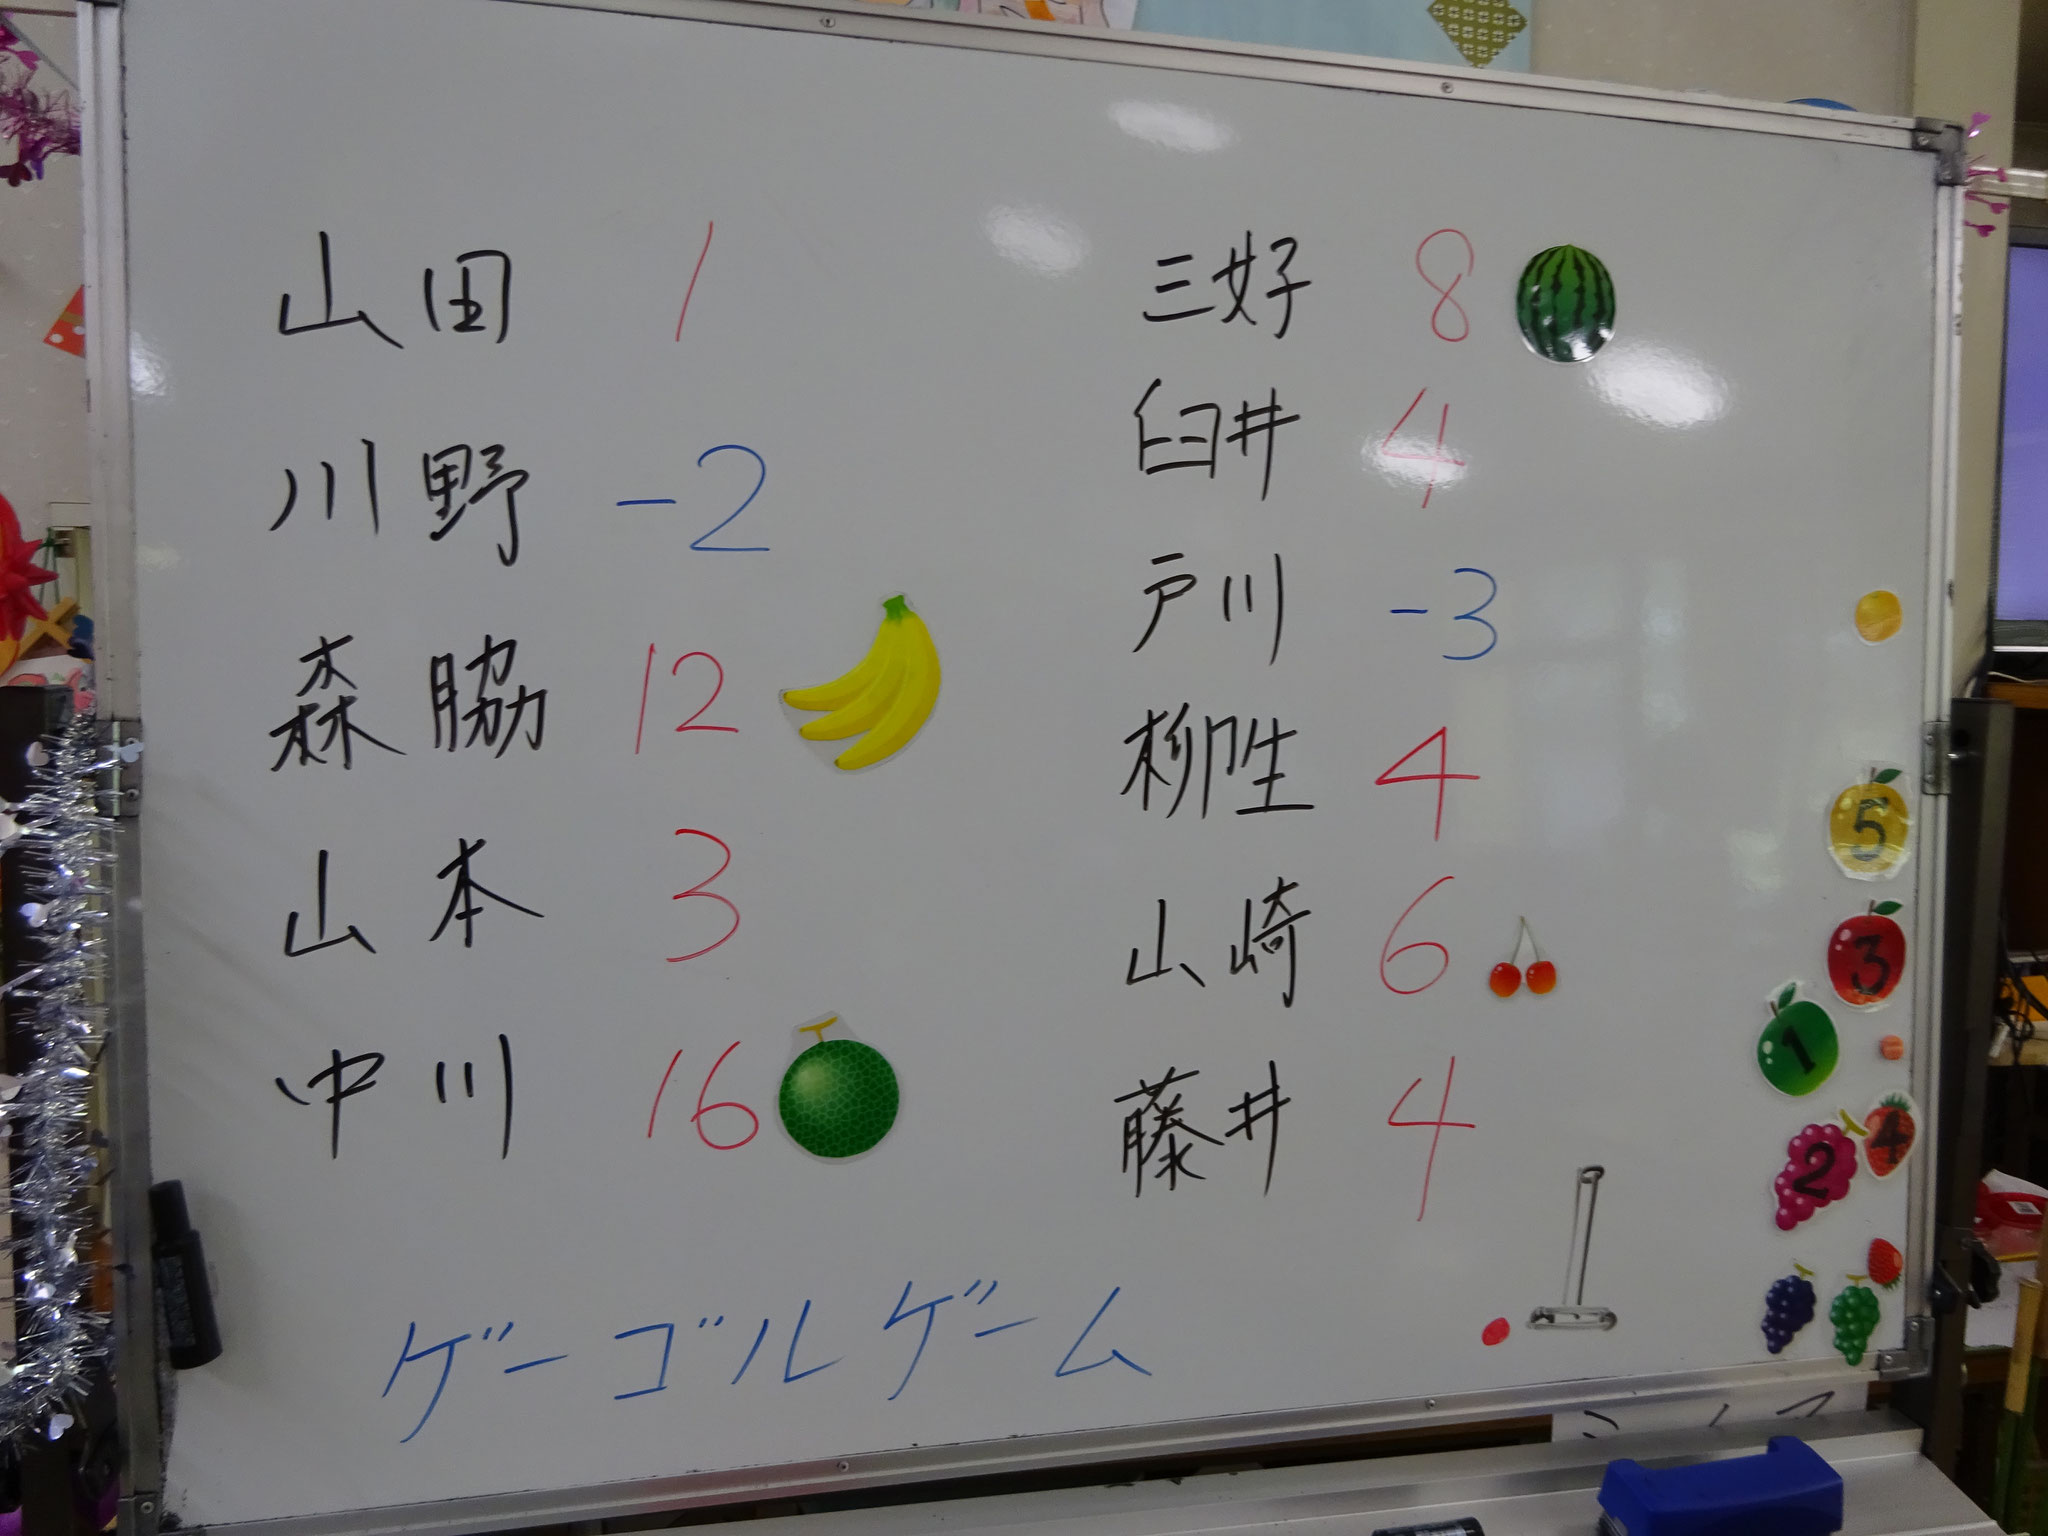 山田 1
川野 -2
森脇 12
山本 3
中川 16
三好 8
臼井 4
戸川 -3
柳生 4
山崎 6
藤井 4
ゲーゴルゲーム
5
3
1
4
2